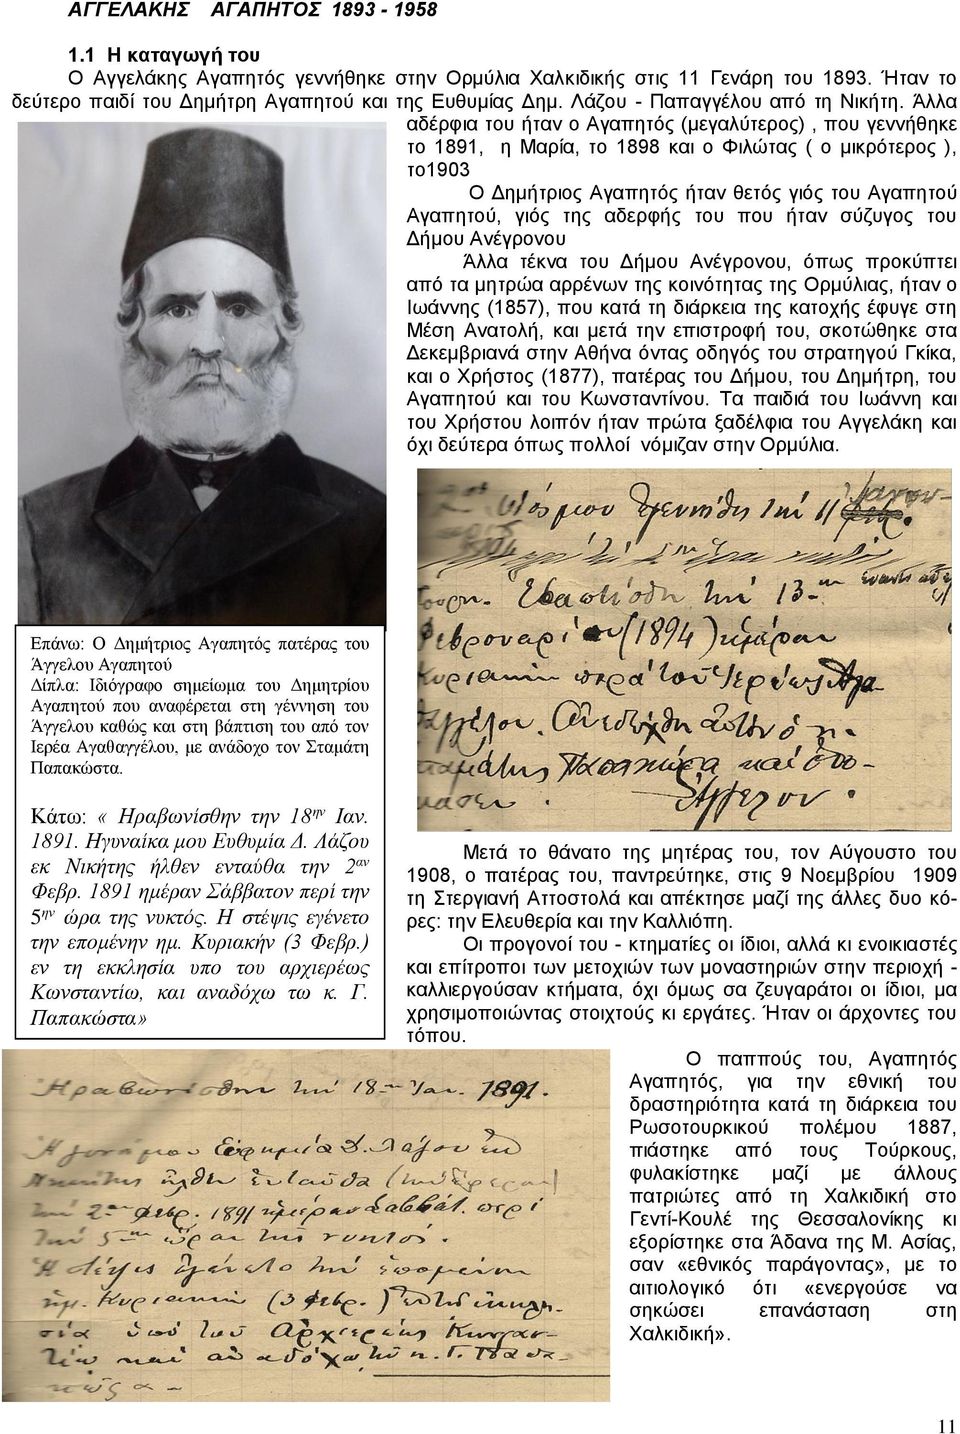 ΑΓΓΕΛΑΚΗΣ ΑΓΑΠΗΤΟΣ 1893 - 1958
1.1 Η καταγωγή του
Ο Αγγελάκης Αγαπητός γεννήθηκε στην Ορμύλια Χαλκιδικής στις 11 Γενάρη του 1893. Ήταν το
δεύτερο παιδί του Δημήτρη Αγαπητού και της Ευθυμίας Δημ. Λάζου - Παπαγγέλου από τη Νικήτη. Άλλα
αδέρφια του ήταν ο Αγαπητός (μεγαλύτερος) , που γεννήθηκε
το 1891, η Μαρία, το 1898 και ο Φιλώτας ( ο μικρότερος ),
το1903
Ο Δημήτριος Αγαπητός ήταν θετός γιός του Αγαπητού
Αγαπητού, γιός της αδερφής του που ήταν σύζυγος του
Δήμου Ανέγρονου
Άλλα τέκνα του Δήμου Ανέγρονου, όπως προκύπτει
από τα μητρώα αρρένων της κοινότητας της Ορμύλιας, ήταν ο
Ιωάννης (1857), που κατά τη διάρκεια της κατοχής έφυγε στη
Μέση Ανατολή, και μετά την επιστροφή του, σκοτώθηκε στα
Δεκεμβριανά στην Αθήνα όντας οδηγός του στρατηγού Γκίκα,
και ο Χρήστος (1877), πατέρας του Δήμου, του Δημήτρη, του
Αγαπητού και του Κωνσταντίνου. Τα παιδιά του Ιωάννη και
του Χρήστου λοιπόν ήταν πρώτα ξαδέλφια του Αγγελάκη και
όχι δεύτερα όπως πολλοί νόμιζαν στην Ορμύλια.
ἐγεννήθη τὴν 11
Ἐβαπτίσθη τὴν 13ην
Φεβρουαρί (1894) ἡμέραν
Κυριακὴν παρὰ τοῦ Ἱερέως
Ἀνεδέχθη αὐτὸ ὁ κ.
Παπακώστα καὶ
Ἄγγελον.
Επάνω: Ο Δημήτριος Αγαπητός πατέρας του
Άγγελου Αγαπητού
Δίπλα: Ιδιόγραφο σημείωμα του Δημητρίου
Αγαπητού που αναφέρεται στη γέννηση του
Άγγελου καθώς και στη βάπτιση του από τον
Ιερέα Αγαθαγγέλου, με ανάδοχο τον Σταμάτη
Παπακώστα.
Κάτω: «Ηραβωνίσθην την 18ην Ιαν.
1891. Ηγυναίκα μου Ευθυμία Δ. Λάζου
εκ Νικήτης ήλθεν ενταύθα την 2αν
Φεβρ. 1891 ημέραν Σάββατον περί την
5ην ώρα της νυκτός. Η στέψις εγένετο
την επομένην ημ. Κυριακήν (3 Φεβρ.)
εν τη εκκλησία υπο του αρχιερέως
Κωνσταντίω, και αναδόχω τω κ. Γ.
Παπακώστα»
Μετά το θάνατο της μητέρας του, τον Αύγουστο του
1908, ο πατέρας του, παντρεύτηκε, στις 9 Νοεμβρίου 1909
τη Στεργιανή Αττοστολά και απέκτησε μαζί της άλλες δυο κό-
ρες: την Ελευθερία και την Καλλιόπη.
Οι προγονοί του - κτηματίες οι ίδιοι, αλλά κι ενοικιαστές
και επίτροποι των μετοχιών των μοναστηριών στην περιοχή -
καλλιεργούσαν κτήματα, όχι όμως σα ζευγαράτοι οι ίδιοι, μα
χρησιμοποιώντας στοιχτούς κι εργάτες. Ήταν οι άρχοντες του
τόπου.
Ο παππούς του, Αγαπητός
Αγαπητός, για την εθνική του
δραστηριότητα κατά τη διάρκεια του
Ρωσοτουρκικού πολέμου 1887,
πιάστηκε από τους Τούρκους,
φυλακίστηκε μαζί με άλλους
πατριώτες από τη Χαλκιδική στο
Γεντί-Κουλέ της Θεσσαλονίκης κι
εξορίστηκε στα Άδανα της Μ. Ασίας,
σαν «εθνικός παράγοντας», με το
αιτιολογικό ότι «ενεργούσε να
σηκώσει επανάσταση στη
Χαλκιδική».
Ἠραβωνίσθην τὴν 18ην Ἰαν. 1891.
Ἡ γυναῖκα μου Εὐθυμία Δ. Λάζου ἐκ
Νικήτης ἦλθεν ἐνταῦθα
τὴν 2αν Φεβρ. 1891 ἡμέραν Σάββατ. περὶ
τὴν 5ην ὥραν τῆς νυκτός.
Ἡ στέψις ἐγένετο τὴν ἐπομένην
ἡμ. Κυριακὴν (3 Φεβρ.) ἐν τῇ ἐκκλη-
σίᾳ ὑπὸ τοῦ Ἀρχιερέως Κωνσταν-
τίῳ καὶ ἀναδόχῳ τῷ κ. Γ. Παπα-
κώστα -
11